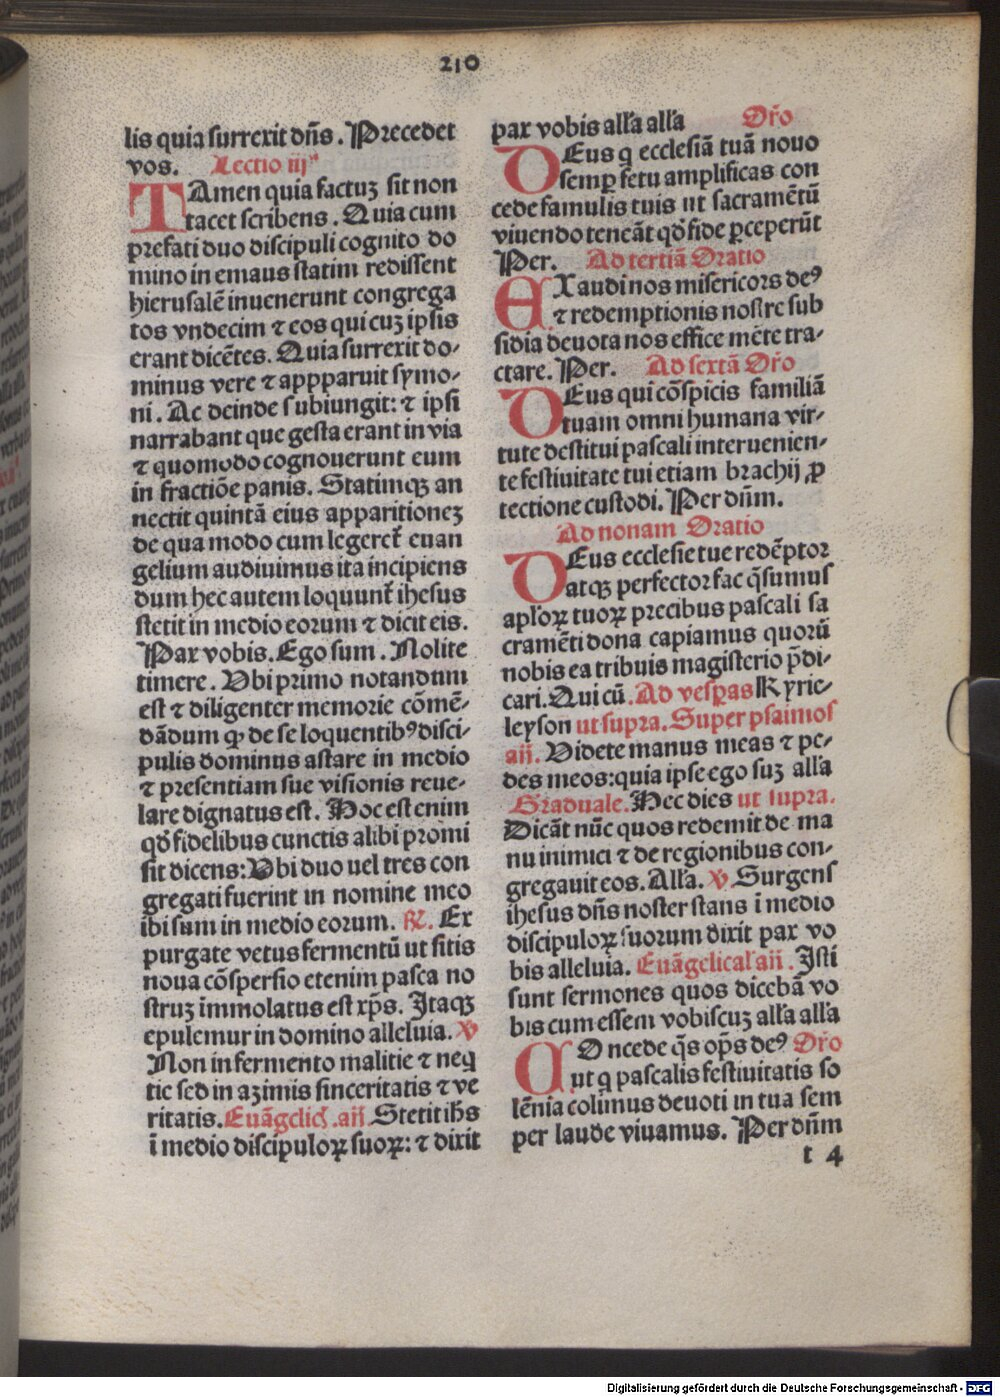 210
lis quia surrexit dñs. Precedet
vos. Lectio iijª
TAmen quia factuꝫ sit non
tacet scribens. Quia cum
prefati duo discipuli cognito do
mino in emaus statim redissent
hierusalē inuenerunt congrega
tos vndecim ⁊ eos qui cuꝫ ipsis
erant dicētes. Quia surrexit do-
minus vere ⁊ appparuit symo-
ni. Ac deinde subiungit: ⁊ ipsi
narrabant que gesta erant in via
⁊ quomodo cognouerunt eum
in fractiōe panis. Statimqꝫ an
nectit quintā eius apparitioneꝫ
de qua modo cum legeret̃ euan
gelium audiuimus ita incipiens
dum hec autem loquunt̃ ihesus
stetit in medio eorum ⁊ dicit eis.
Pax vobis. Ego sum. Nolite
timere. Ubi primo notandum
est ⁊ diligenter memorie cōmē-
dādum qꝫ de se loquentibꝰ disci-
pulis dominus astare in medio
⁊ presentiam sue visionis reue-
lare dignatus est. Hoc est enim
qð fidelibus cunctis alibi promi
sit dicens: Ubi duo uel tres con
gregati fuerint in nomine meo
ibi sum in medio eorum. ℟. Ex
purgate vetus fermentū ut sitis
noua cōspersio etenim pasca no
struꝫ immolatus est xp̄s. Itaqꝫ
epulemur in domino alleluia. ℣
Non in fermento malitie ⁊ neq
tie sed in azimis sinceritatis ⁊ ve
ritatis. Euāgelicꝭ. añ. Stetit ihs̄
ī medio discipuloꝝ suoꝝ: ⁊ dixit
pax vobis alľa alľa Oȓo
DEus q ecclesiā tuā nouo
semꝑ fetu amplificas con
cede famulis tuis ut sacramētū
viuendo teneāt qð fide ꝑceperūt
Per. Ad tertiā Oratio
EXaudi nos misericors deꝰ
⁊ redemptionis nostre sub
sidia deuota nos effice mēte tra-
ctare. Per. Ad sextā Oȓo
DEus qui cōspicis familiā
tuam omni humana vir-
tute destitui pascali interuenien-
te festiuitate tui etiam brachij ꝓ
tectione custodi. Per dñm.
Ad nonam Oratio
DEus ecclesie tue redēptor
atqꝫ perfector fac q̄sumus
apľoꝝ tuoꝝ precibus pascali sa
cramēti dona capiamus quorū
nobis ea tribuis magisterio p̄di-
cari. Qui cū. Ad vesꝑas Kyrie-
leyson ut supra. Super psalmos
añ. Videte manus meas ⁊ pe-
des meos: quia ipse ego suꝫ alľa
Graduale. Hec dies ut supra.
Dicāt nūc quos redemit de ma
nu inimici ⁊ de regionibus con-
gregauit eos. Alľa. ℣. Surgens
ihesus dñs noster stans ī medio
discipuloꝝ suorum dixit pax vo
bis alleluia. Euāgelicaľ añ. Isti
sunt sermones quos dicebā vo
bis cum essem vobiscuꝫ alľa alľa
COncede q̄s op̄s deꝰ Oȓo
ut q pascalis festiuitatis so
lēnia colimus deuoti in tua sem
per laude viuamus. Per dñm
t 4
Digitalisierung gefördert durch die Deutsche Forschungsgemeinschaft - DFG